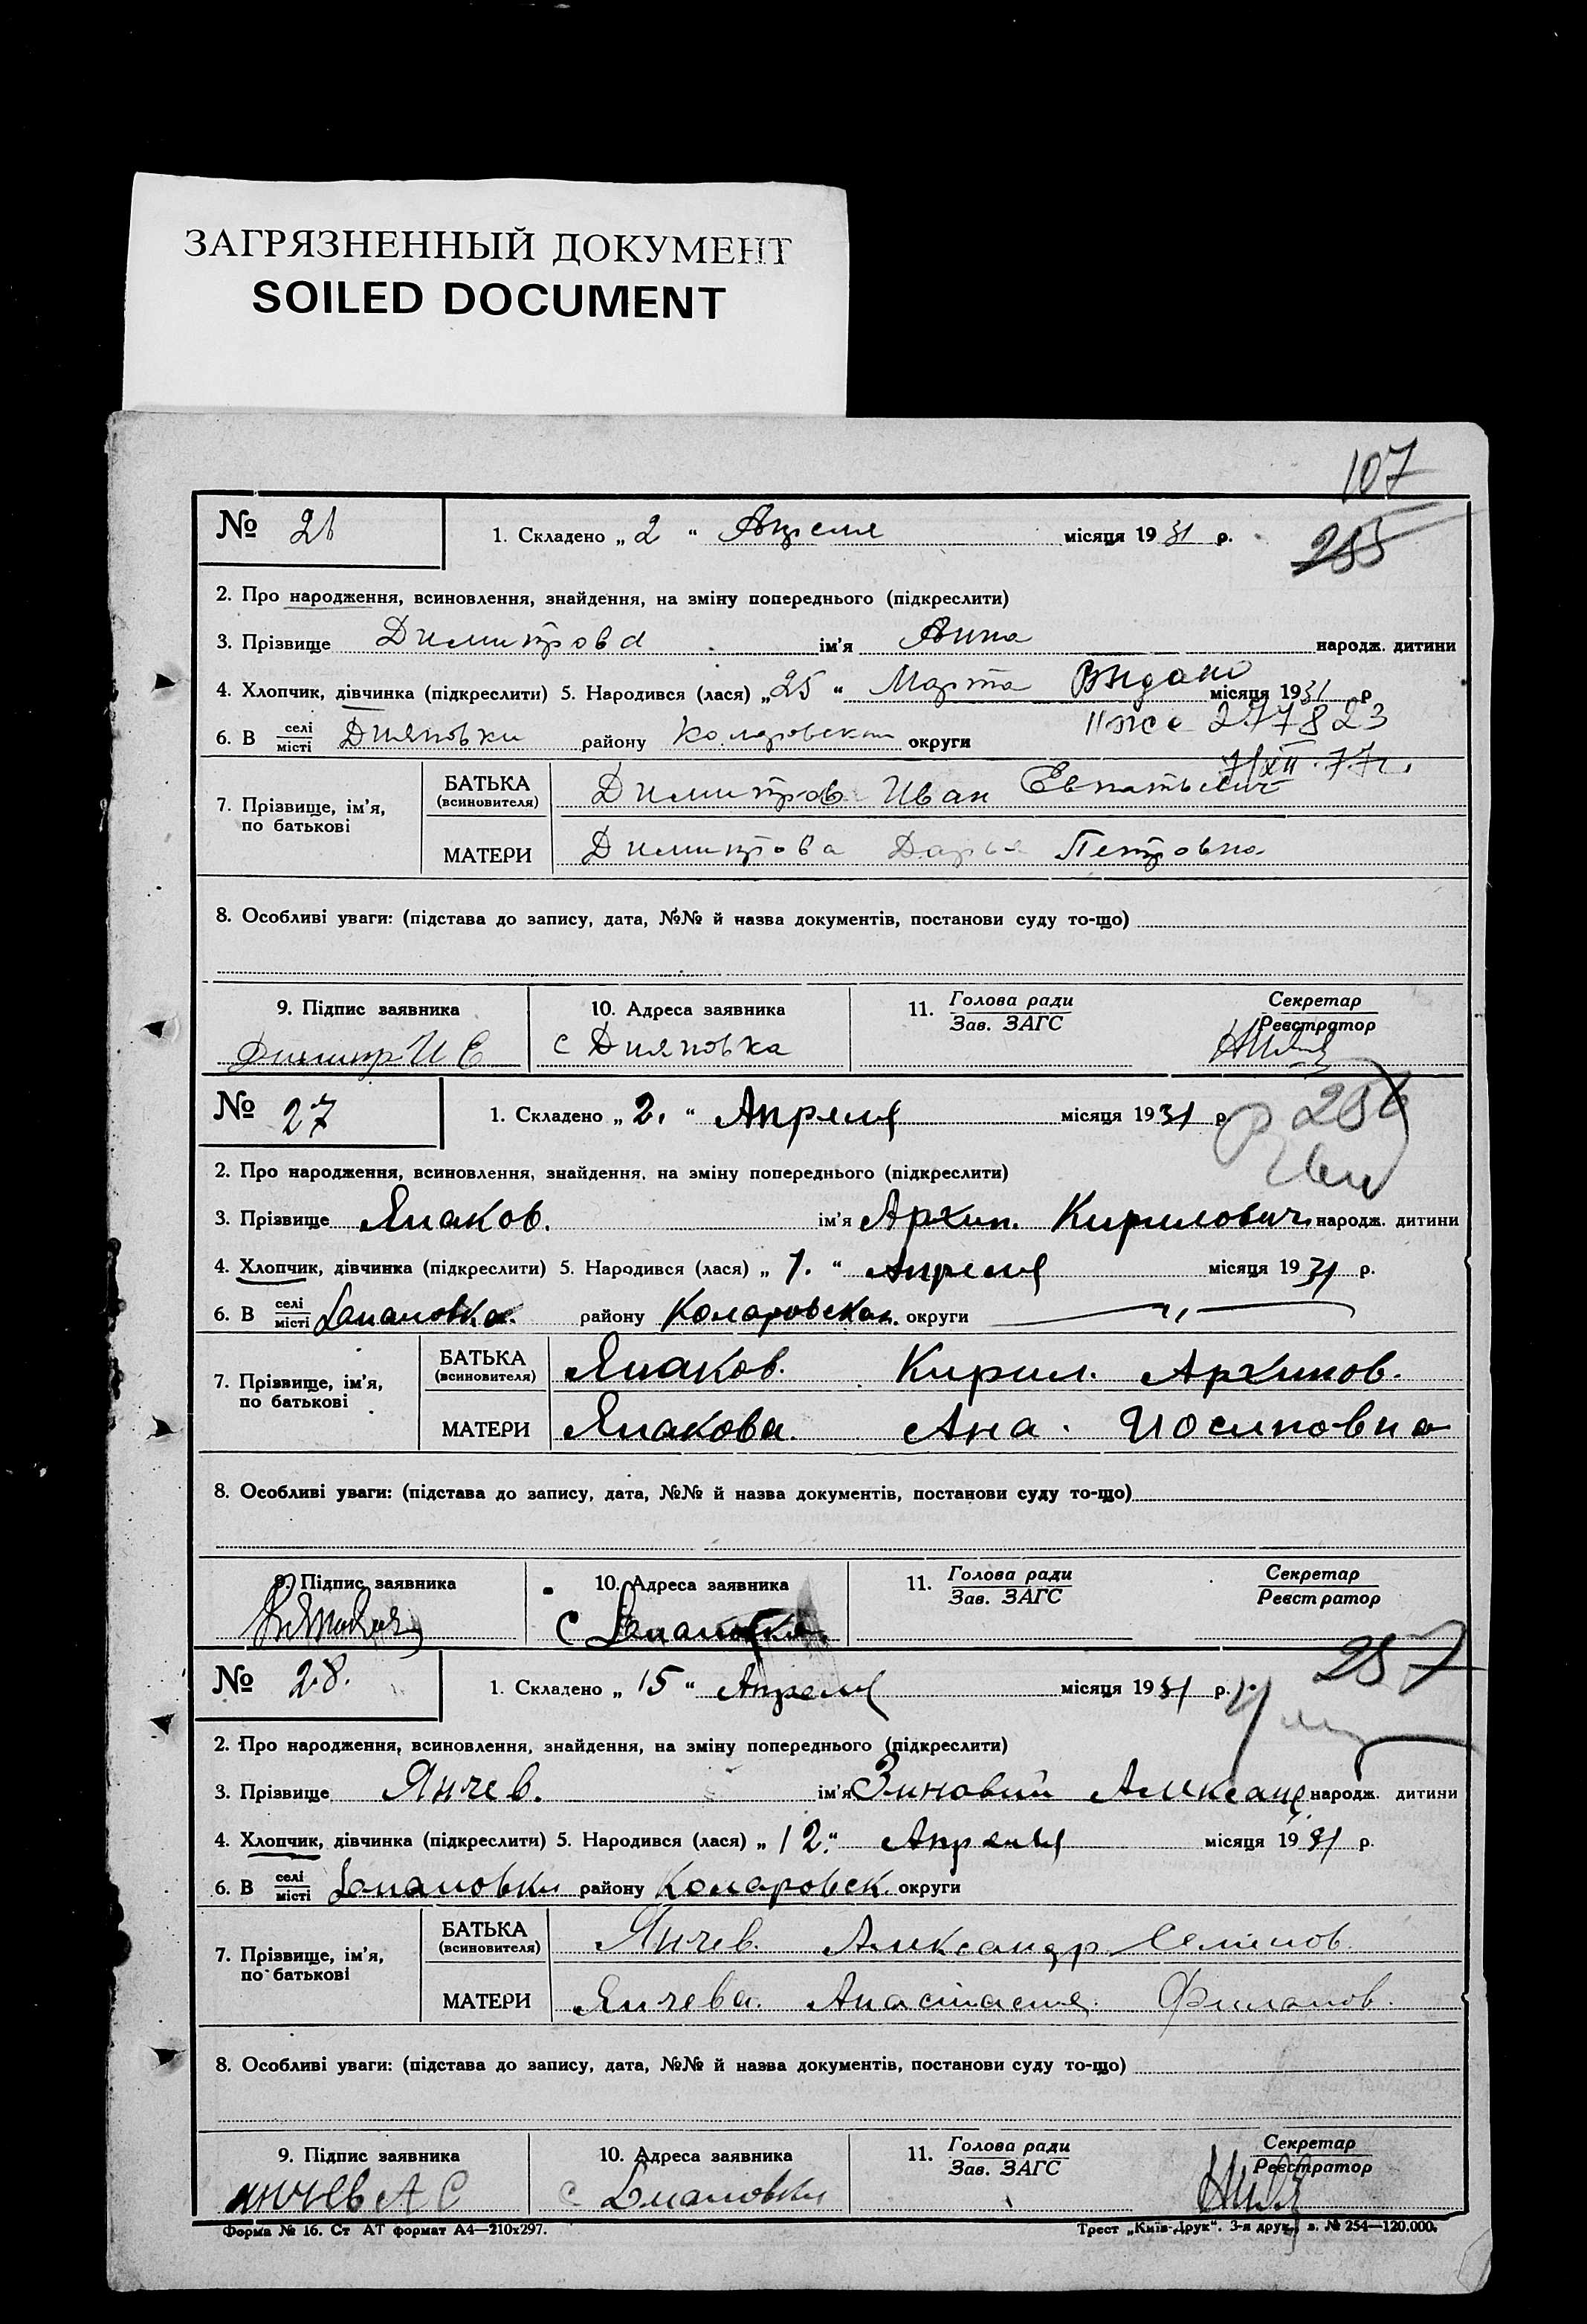 ЗАГРЯЗНЕННЫЙ ДОКУМЕНТ
SOILED DOCUMENT
107
№ 26 1. Складено „ 2 “ Апреля місяця 1931 р.
255
2. Про народження, всиновлення, знайдення, на зміну попереднього (підкреслити)
3. Прізвище Димитрова ім'я Анна народж. дитини
4. Хлопчик, дівчинка (підкреслити) 5. Народився (лася) „25“ Марта місяця 1931 р
Видано
6. В селі/місті Дияновки району Коларовском округи
277823
7/XII.77г.
7. Прізвище, ім'я, по батькові
БАТЬКА (всиновителя) Димитров Иван Евпатьевич
МАТЕРИ Димитрова Дарья Петровна
8. Особливі уваги: (підстава до запису, дата, №№ й назва документів, постанови суду то-що)
9. Підпис заявника 10. Адреса заявника 11. Голова ради/Зав. ЗАГС Секретар/Реєстратор
Димитр И Е с Дияновка
№ 27 1. Складено „ 2. “ Апреля місяця 1931 р.
256
2. Про народження, всиновлення, знайдення, на зміну попереднього (підкреслити)
3. Прізвище Япаков. ім'я Архип. Кирилович народж. дитини
4. Хлопчик, дівчинка (підкреслити) 5. Народився (лася) „ 1. “ Апреля місяця 1931 р.
6. В селі/місті району Коларовском. округи — „ —
7. Прізвище, ім'я, по батькові
БАТЬКА (всиновителя) Япаков. Кирил. Архипов.
МАТЕРИ Япакова. Ана. Иосиповна
8. Особливі уваги: (підстава до запису, дата, №№ й назва документів, постанови суду то-що)
9. Підпис заявника 10. Адреса заявника 11. Голова ради/Зав. ЗАГС Секретар/Реєстратор
с
№ 28. 1. Складено „ 15 “ Апреля місяця 1931 р.
257
2. Про народження, всиновлення, знайдення, на зміну попереднього (підкреслити)
3. Прізвище Янчев. ім'я Зиновий Александ. народж. дитини
4. Хлопчик, дівчинка (підкреслити) 5. Народився (лася) „ 12. “ Апреля місяця 1931 р.
6. В селі/місті району Коларовск округи
7. Прізвище, ім'я, по батькові
БАТЬКА (всиновителя) Янчев. Александр Семенов.
МАТЕРИ Янчева. Анастасия. Филипов.
8. Особливі уваги: (підстава до запису, дата, №№ й назва документів, постанови суду то-що)
9. Підпис заявника 10. Адреса заявника 11. Голова ради/Зав. ЗАГС Секретар/Реєстратор
Янчев А С с
Форма № 16. Ст АТ формат А4—210x297. Трест „Київ-Друк“. 3-я друк., з. № 254—120.000.